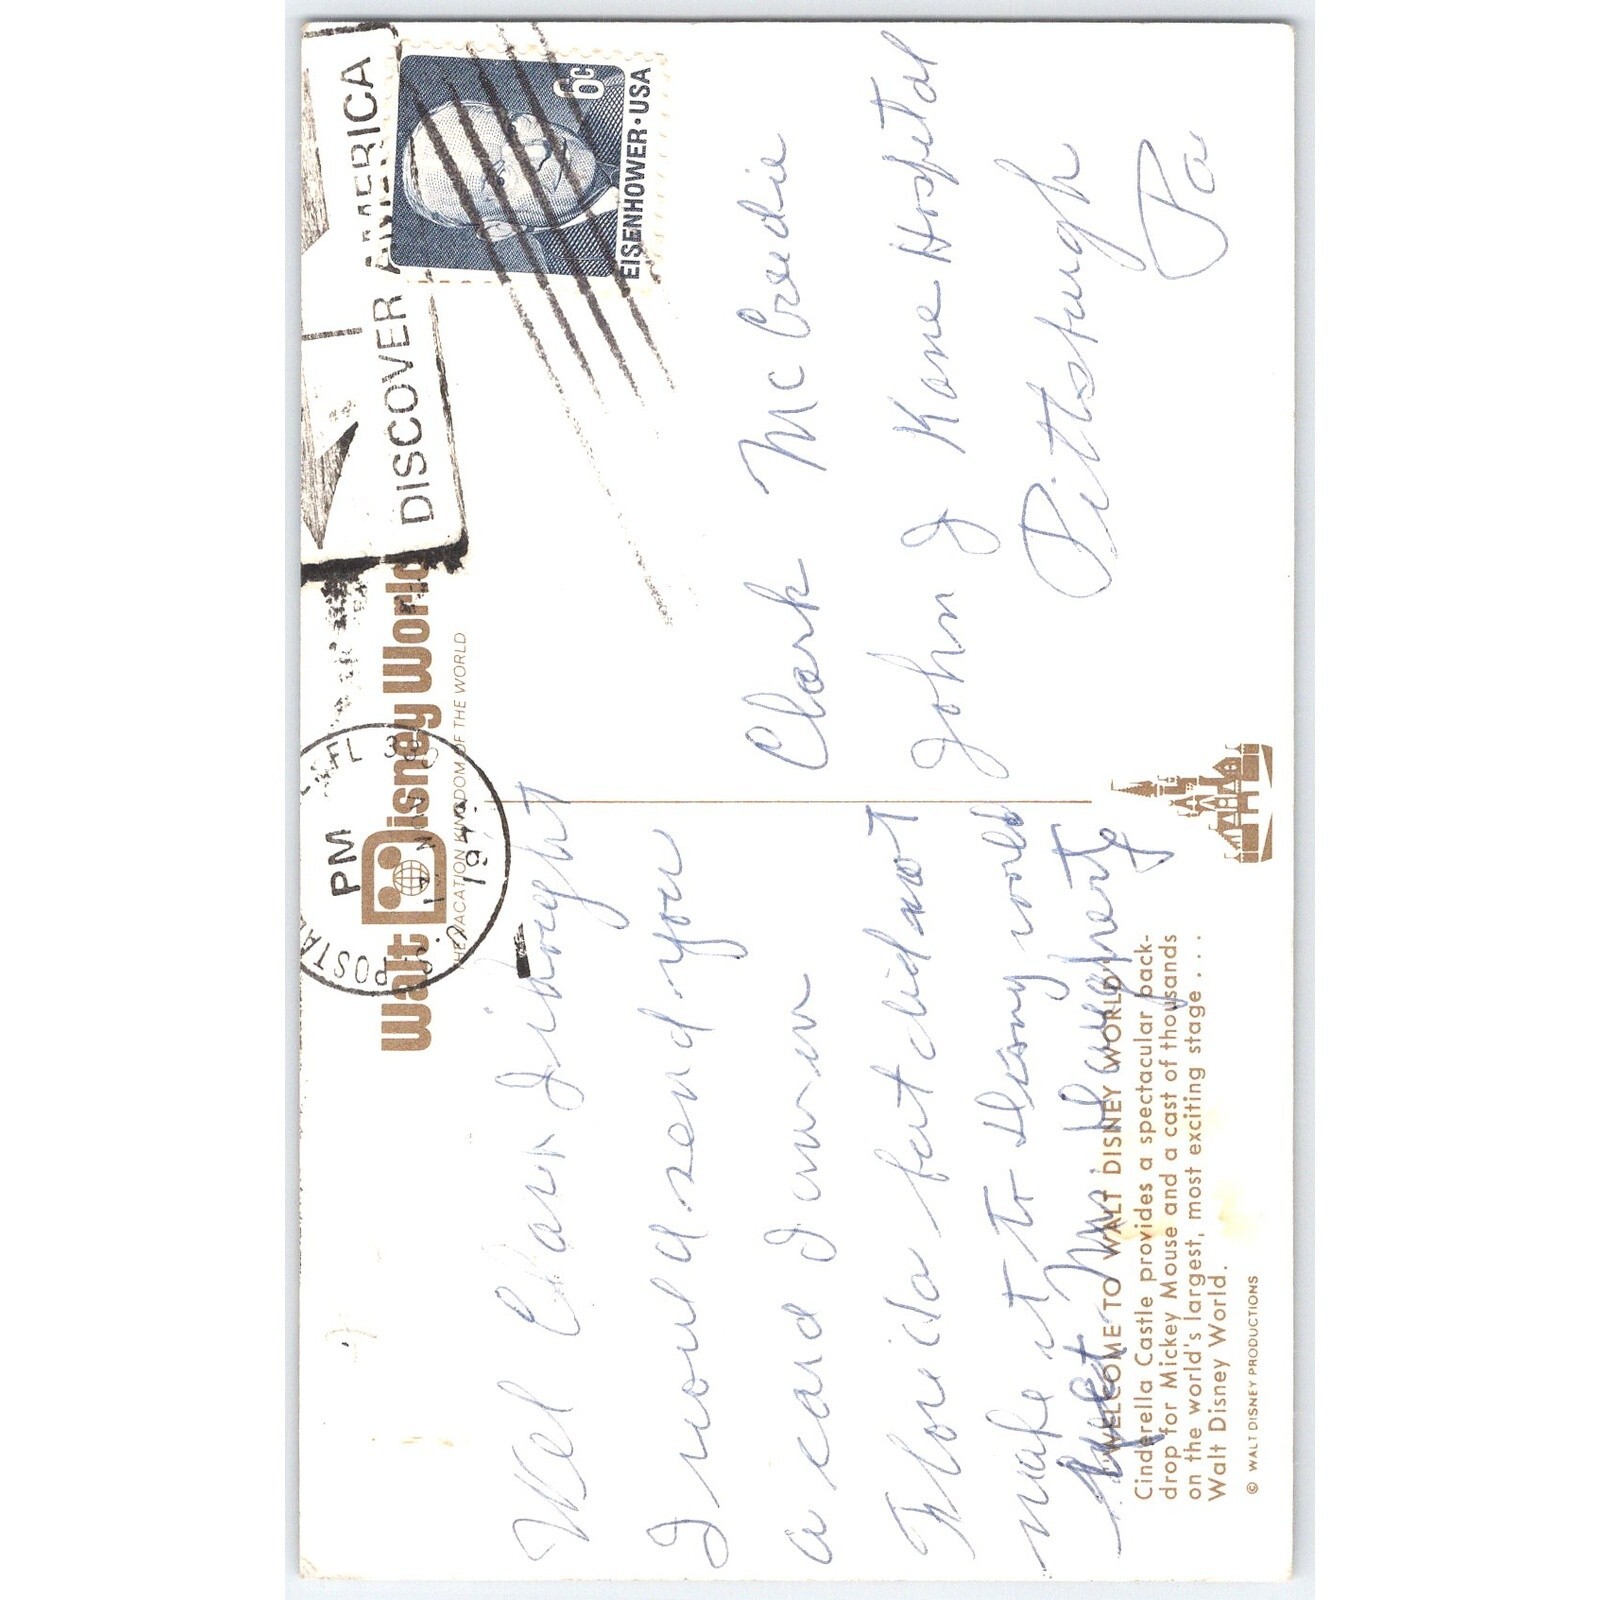 Walt Disney World
THE VACATION KINGDOM OF THE WORLD
POSTAL
FL
PM
197
DISCOVER AMERICA
6c
EISENHOWER·USA
Wel Clark I thought
I would send you
a card I am in
Florida but did not
make it to Disney world
yet Mr. Daugherty
Clark McCredie
John J Kane Hospital
Pittsburgh
Pa
"WELCOME TO WALT DISNEY WORLD"
Cinderella Castle provides a spectacular back-
drop for Mickey Mouse and a cast of thousands
on the world's largest, most exciting stage . . .
Walt Disney World.
© WALT DISNEY PRODUCTIONS